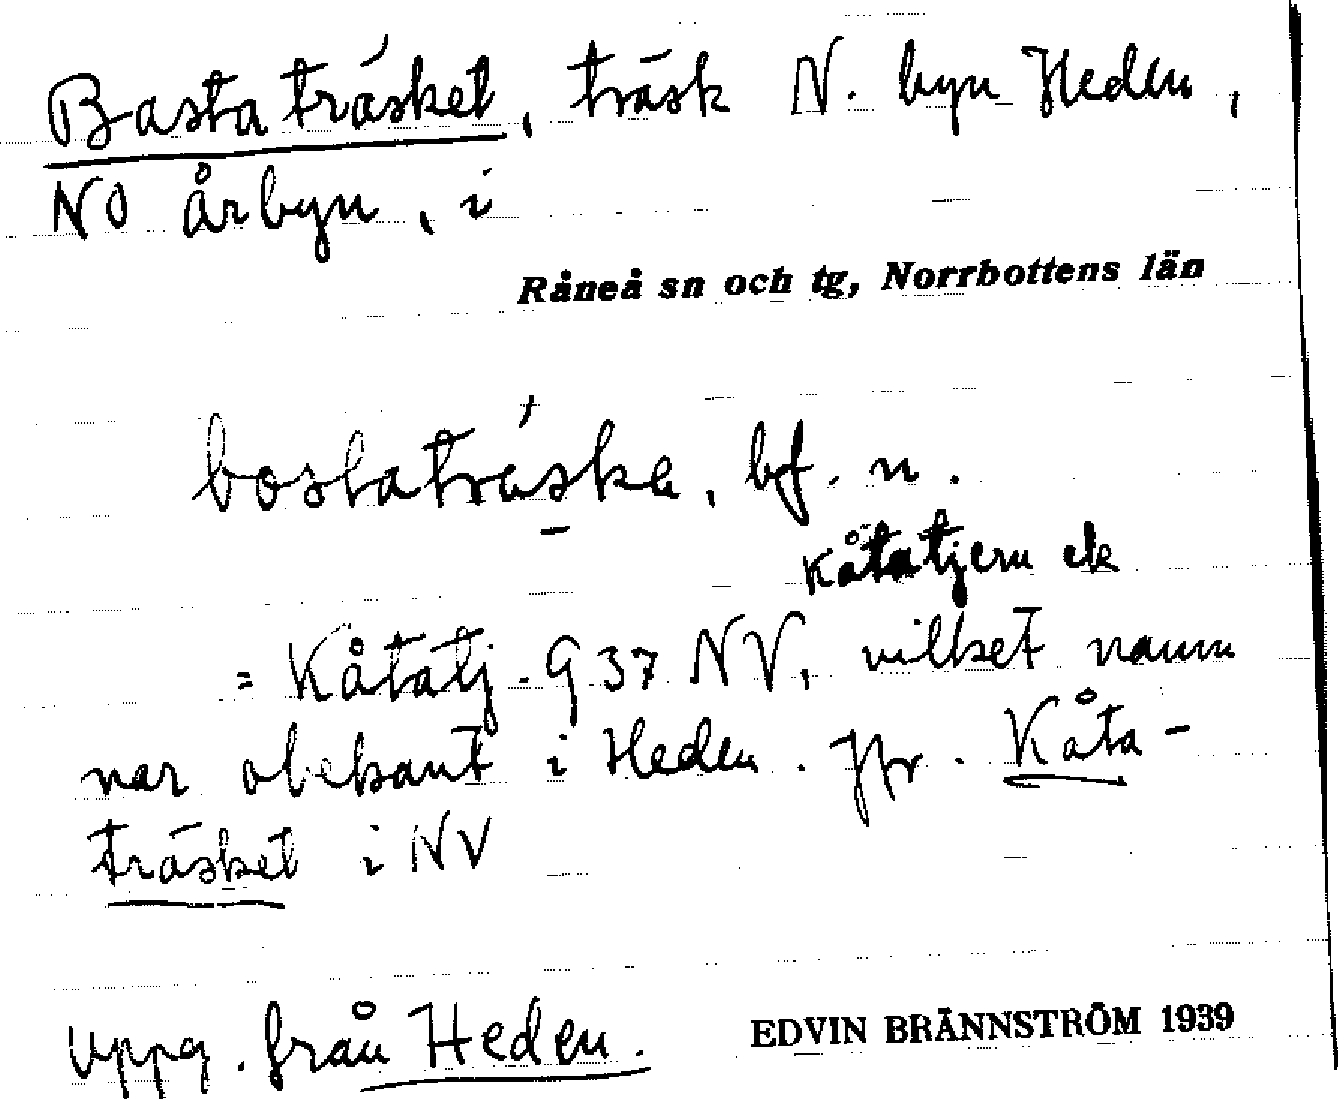 Bastaträsket, träsk N. byn Heden,
NO årbyn, i
Råneå sn och tg, Norrbottens län
bostaträske, bf. n.
Kåtatjern ek
= Kåtatj. 937 NV, vilket namn
var obekant i Heden. Jfr. Kåta-
träsket i NV
uppg. från Heden.
EDVIN BRÄNNSTRÖM 1939